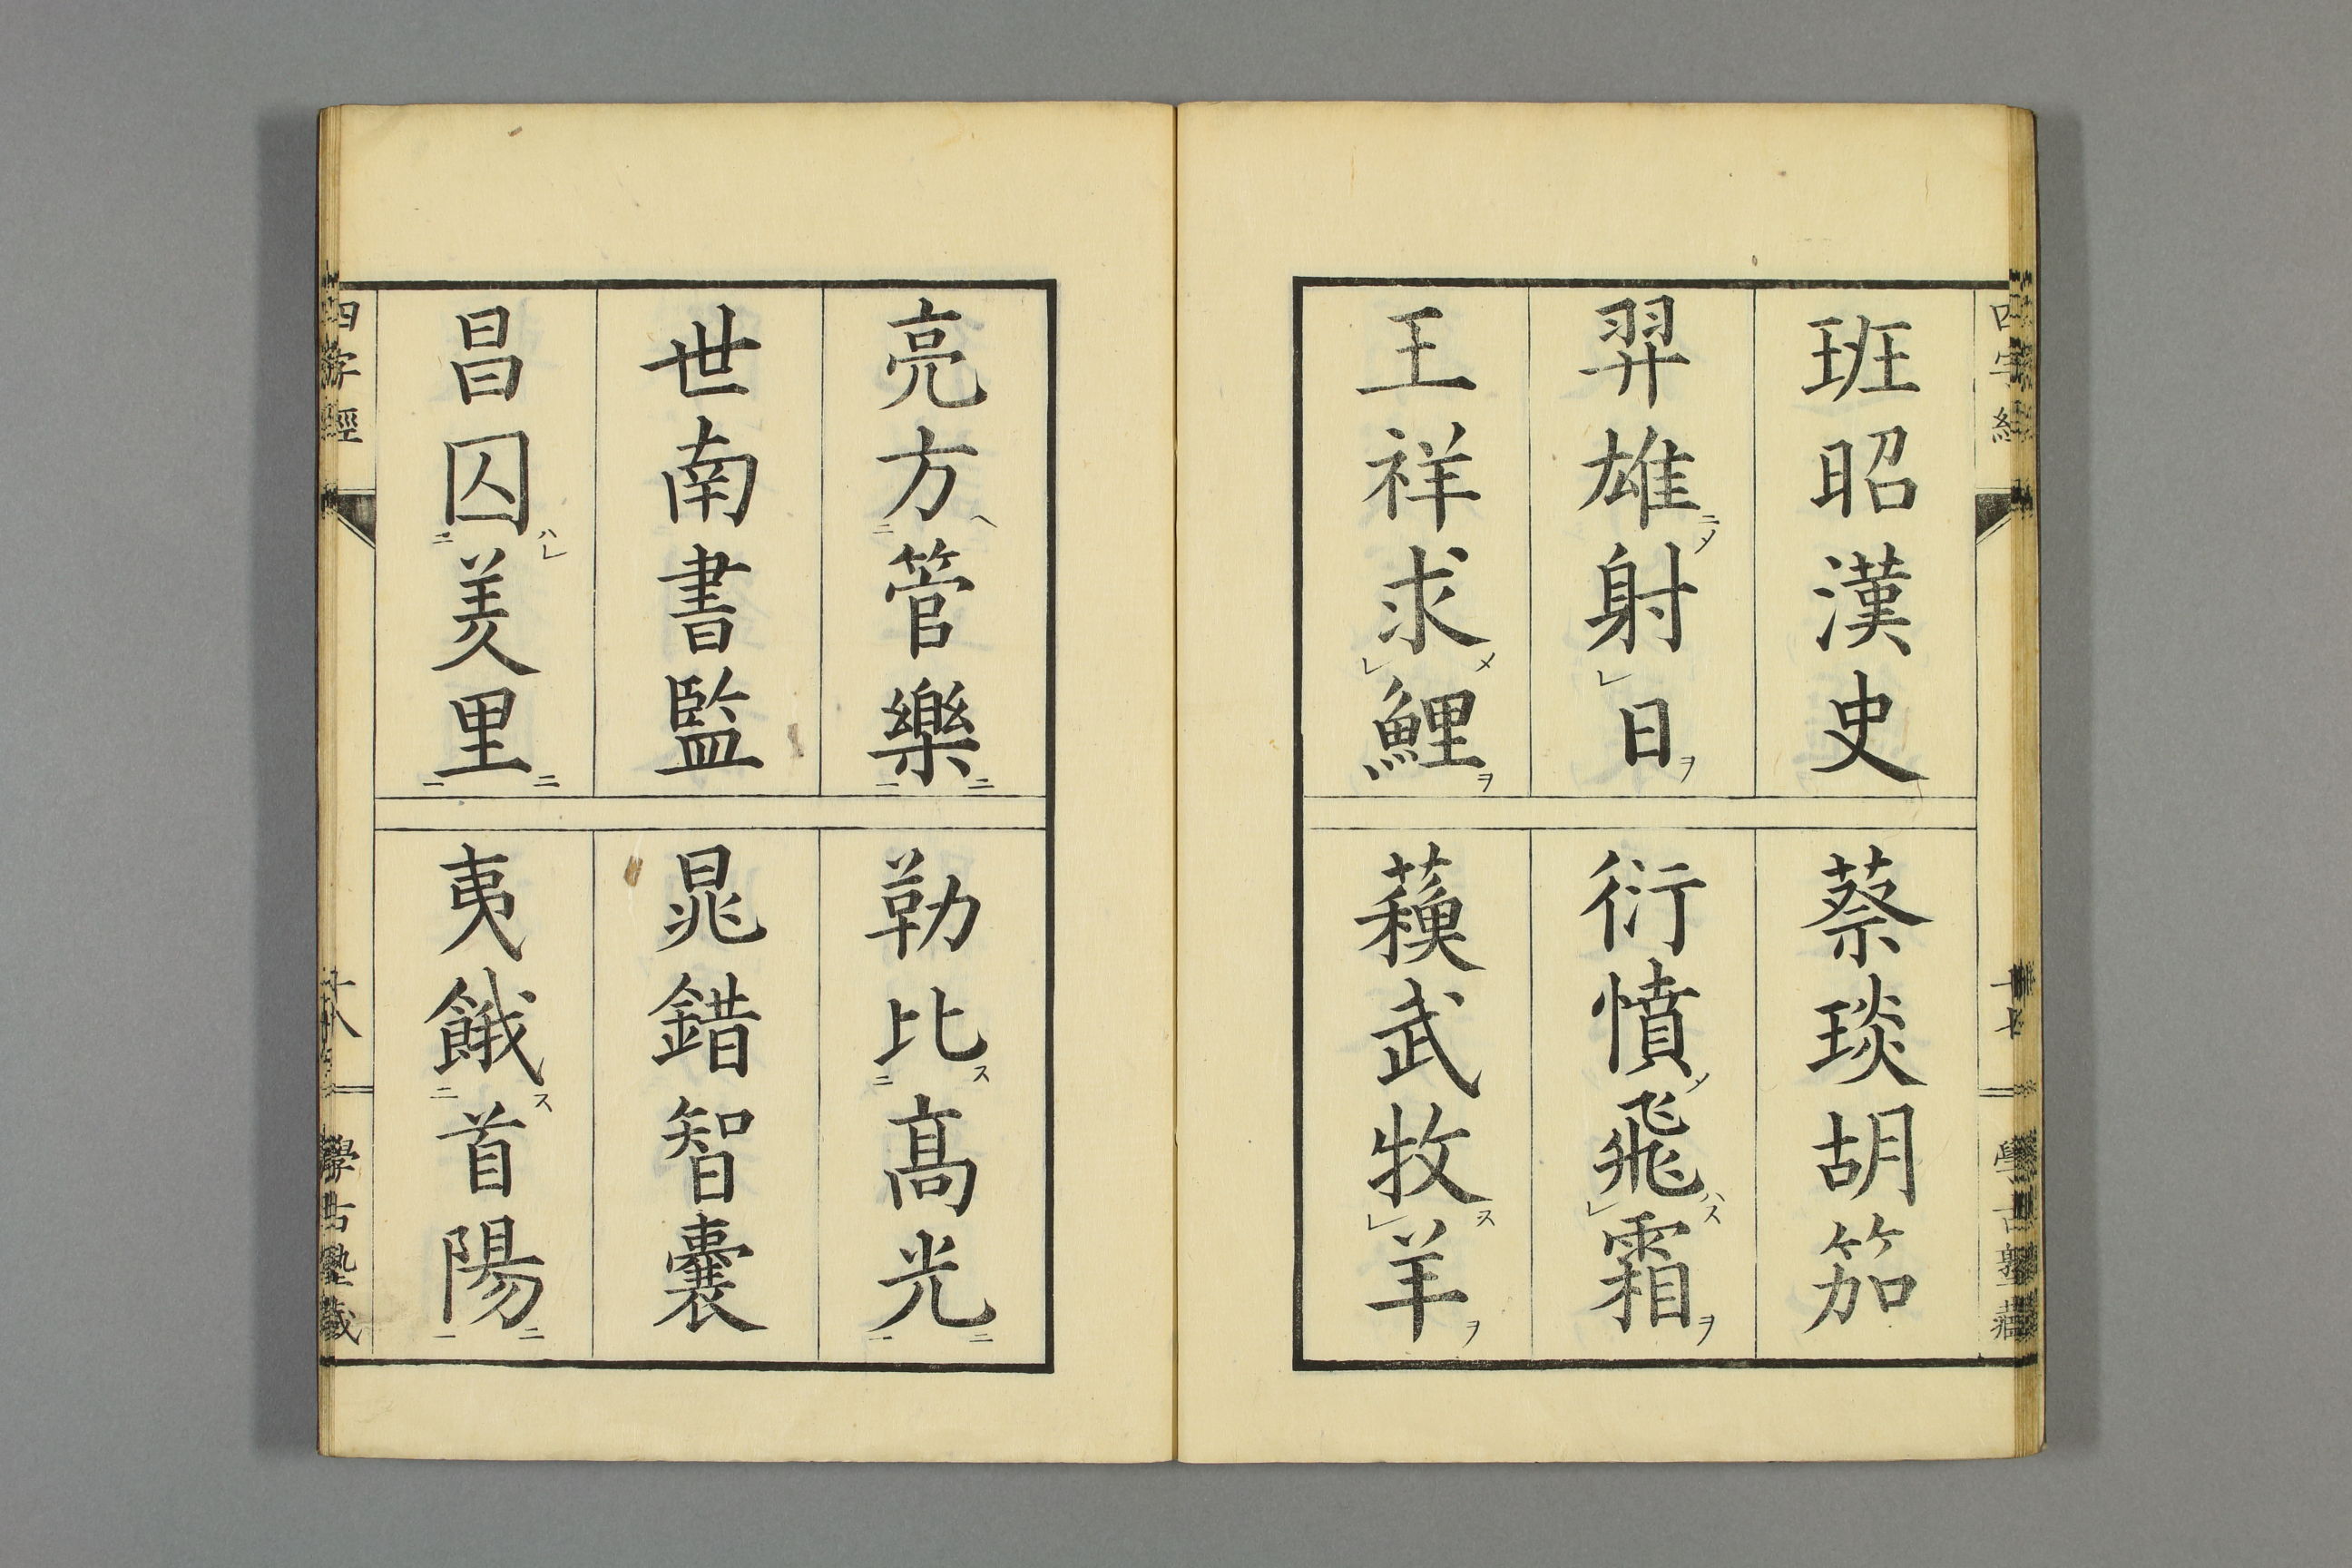 四字經
十七
學古塾藏
班昭漢史
蔡琰胡笳
羿雄射日
衍憤飛霜
王祥求鯉
蘓武牧羊
亮方管樂
勒比髙光
世南書監
晁錯智囊
昌囚羑里
夷餓首陽
四字經
十八
學古塾藏